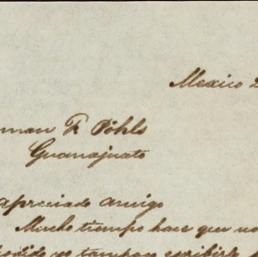 Mexico 2
rman F. Pöhls
Guanajuato
apreciado amigo
Mucho tiempo hace que no
podido yo tampoco escribirte